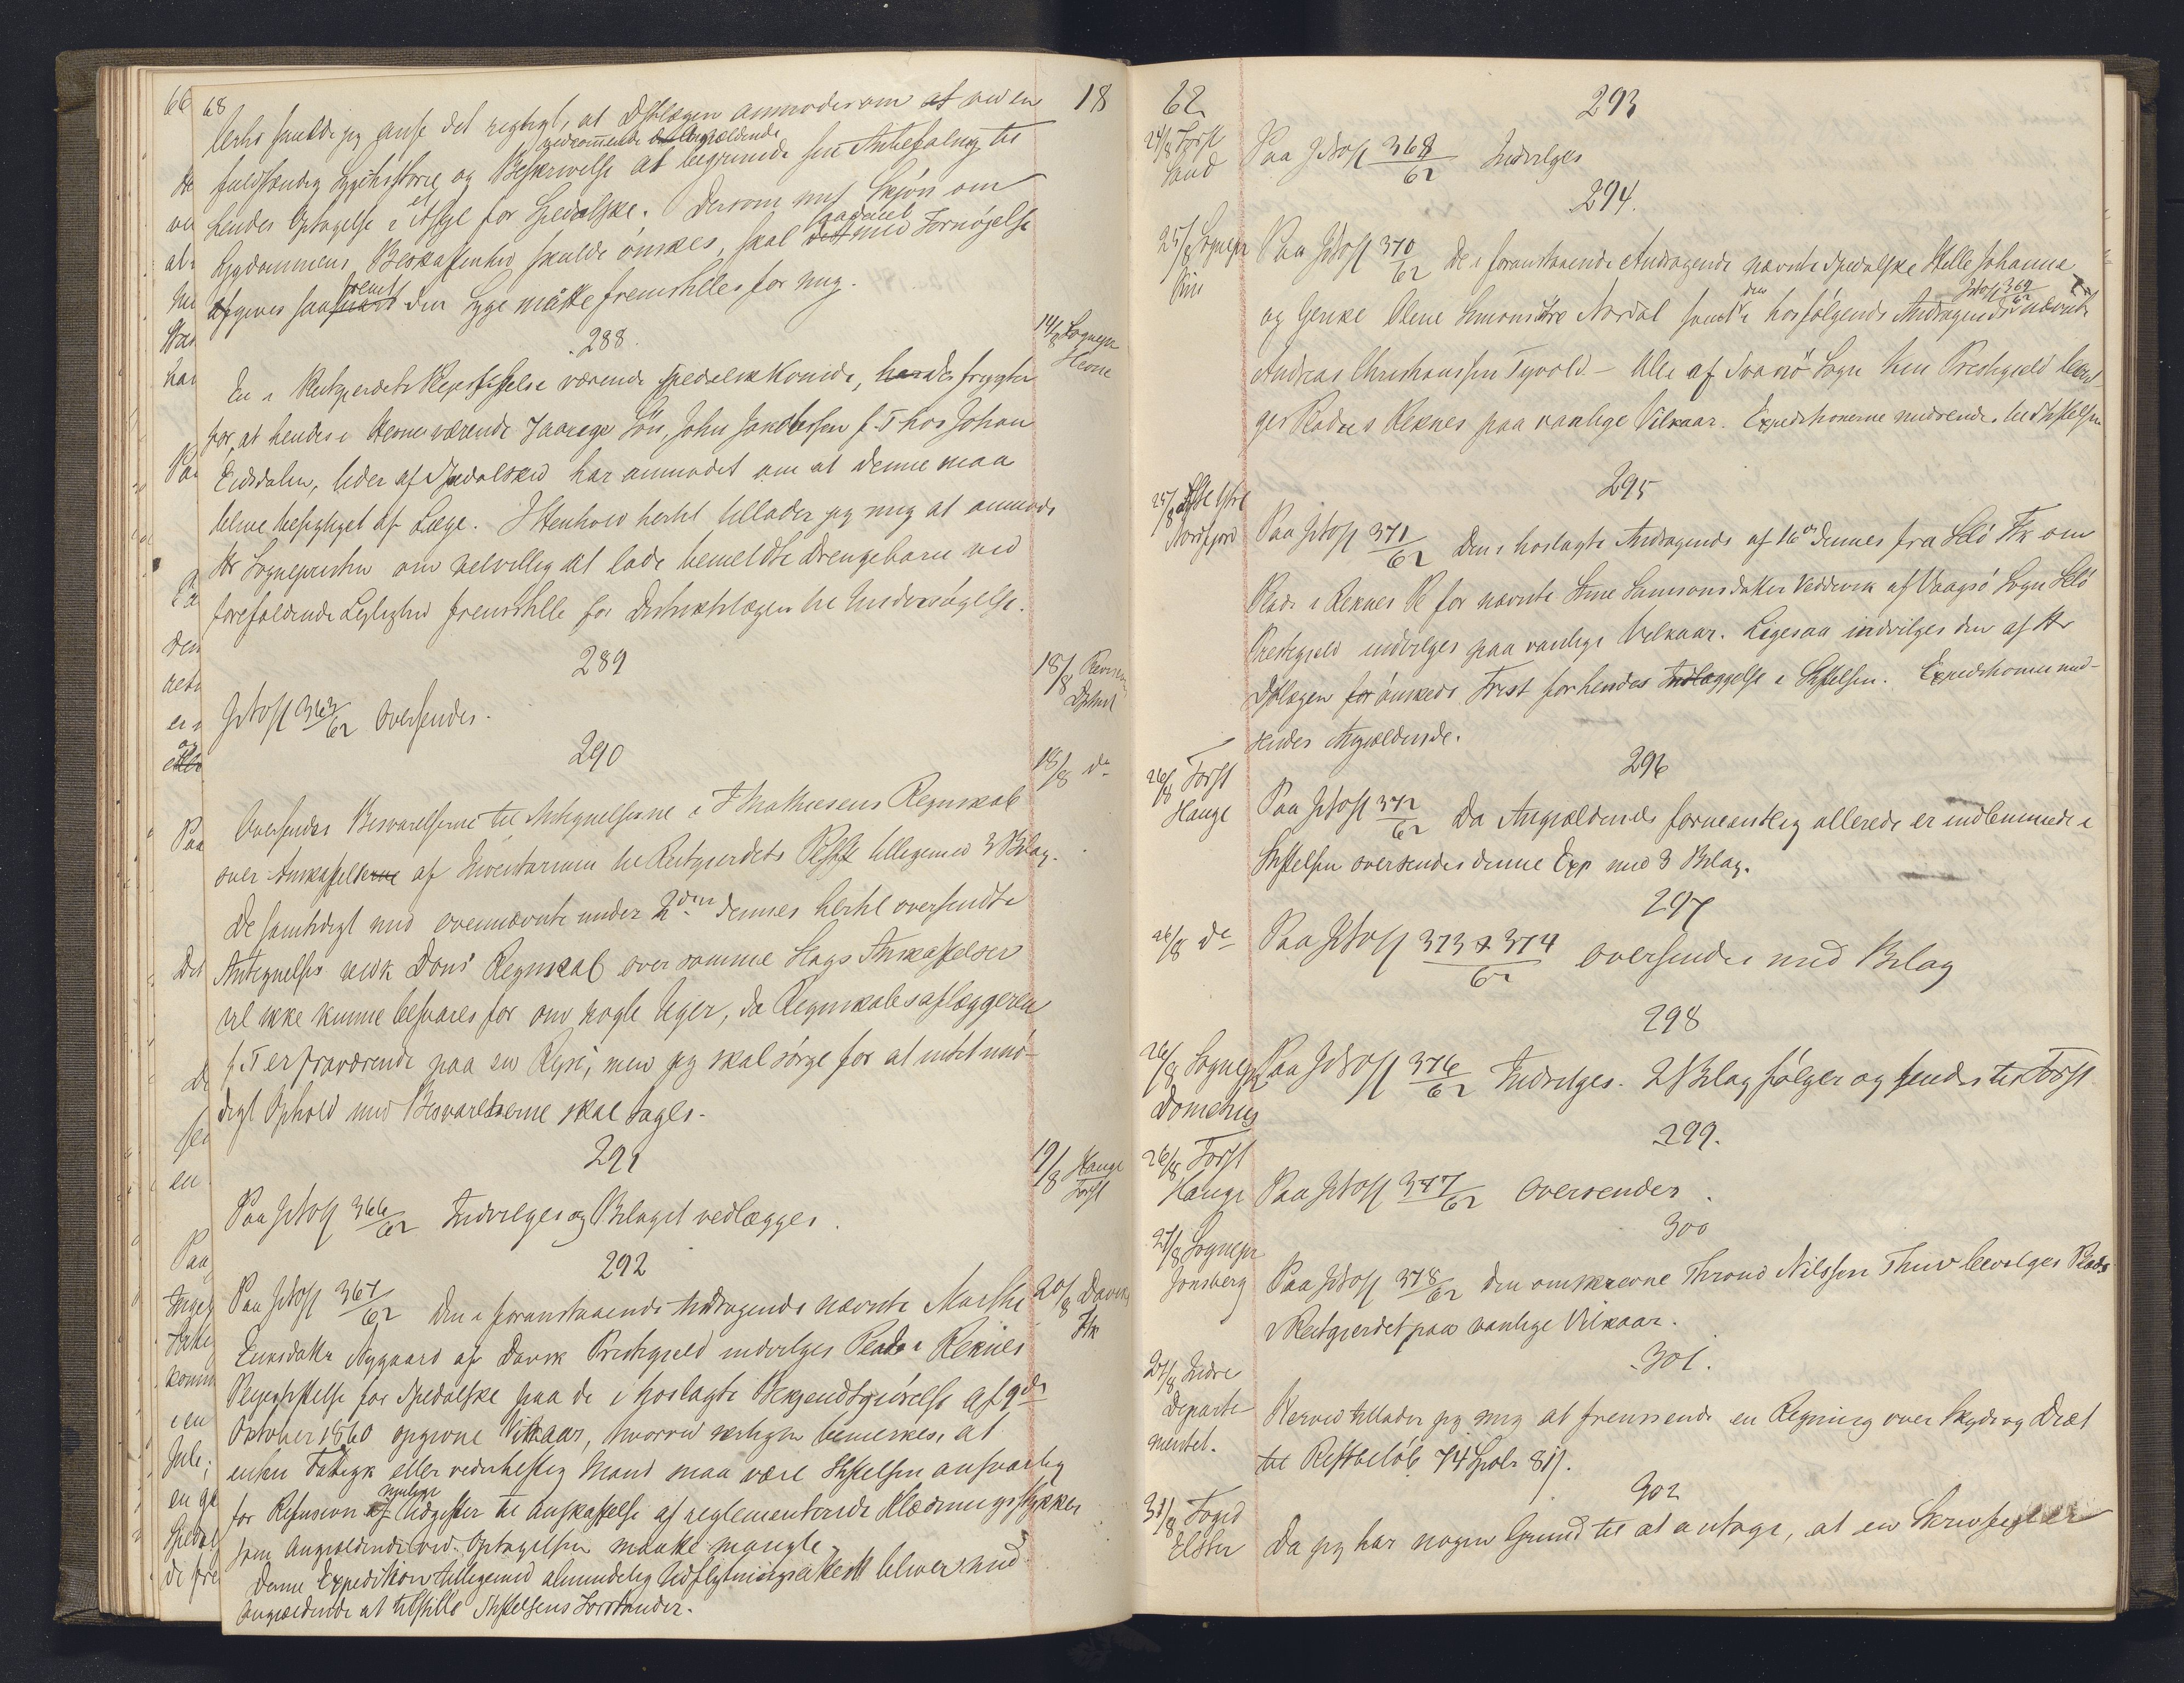 68
18
lertid skulde jeg anse det rigtigt, at Dstlægen anmodes om at ved en
vedkommende Angjældende
fuldstændig Sygehistorie og Beskrivelse at begrunde sin Anbefaling til
hendes Optagelse i et Asyl for Spedalske. Dersom mit Skjøn om
Sygdommens Beskaffenhed skulde ønskes, skal saadant med Fornøjelse
afgives saasnart den Syge måtte fremstilles for mig.
288.
14/8 Sognepr
Hevne
En i Reitgjerdets Plejestiftelse værende spedalsk Kvinde, der frygter
for, at hendes i Hevne værende 7 aarige Søn, John Jakobsen p. T hos Johan
Eidsdalen, lider af Spedalskhed har anmodet om at denne maa
blive besigtiget af Læge. I Henhold hertil tillader jeg mig at anmode
Hr Sognepresten om velvilligst at lade bemeldte Drengebarn ved
forefaldende Leilighed fremstille for Distriktslægen til Undersøgelse.
289
18/8 Revisions
Dptmt
Jrnos 363/62 Oversendes.
290
18/8 do
Oversendes Besvarelserne til Antegnelserne i F Mathiesens Regnskab
over Anskaffelserne af Inventarium til Reitgjerdets Plstftlse tilligemed 3 Bilag.
De samtidigt med ovennævnte under 2den dennes hertil oversendte
Antegnelser vedk Dons' Regnskab over samme Slags Anskaffelser
vil ikke kunne besvares før om nogle Uger, da Regnskabsaflæggeren
p. T er fraværende paa en Rejse, men jeg skal sørge for at intet unø-
digt Ophold med Besvarelserne skal tages.
291
19/8 Hauge
Forst
Paa Jrnos 366/62 Indvilges og Bilaget vedlægges.
292
20/8 Davik
Ftk
Paa Jrnos 367/62 Den i foranstaaende Andragende nævnte Marthe
Eriksdatter Nygaard af Davik Prestegjeld indvilges Plads i Reknes
Plejestiftelse for Spedalske paa de i hoslagte Bekjendtgjørelse af 9de
Oktober 1860 opgivne Vilkaar, hvorved særligen bemerkes, at
enten Fattigk eller vederheftig Mand maa være Stiftelsen ansvarlig
for Refusion af mulige Udgifter til Anskaffelse af reglementerede Klædningsstykker
som Angjældende ved Optagelsen maatte mangle.
Denne Expedition tilligemed almindelig Udflytningsattest bliver med
Angjældende at tilstille Stiftelsens Forstander.
62
293
24/8 Forst
Sand
Paa Jrnos 368/62 Indvilges
294.
25/8 Sognepr
Kin
Paa Jrnos 370/62 De i foranstaaende Andragende nævnte Spedalske Helle Johanne
og Gjenke Oline Simonsdtre Nordal samt den i hosfølgende Andragende Jrnos 369/62 nævnte
Andreas Christiansen Tyvold – Alle af Svanø Sogn Kin Prestegjeld bevil-
ges Plads i Reknes paa vanlige Vilkaar. Expeditionerne medsendes til Stiftelsen
295
25/8 Dstl ytre
Nordfjord
Paa Jrnos 371/62 Den i hoslagte Andragende af 16de dennes fra Selø Ftk om
Plads i Reknes Pl for nævnte Stine Samsonsdatter Vedvik af Vaagsø Sogn Selø
Prestegjeld indvilges paa vanlige Vilkaar. Ligesaa indvilges den af Hr
Dstlægen ønskede Frist for hendes Indlæggelse i Stiftelsen. Expeditionen med-
sendes Angjældende.
296
26/8 Forst
Hauge
Paa Jrnos 372/62 Da Angjældende formeentlig allerede er indlemmede i
Stiftelsen oversendes denne Exp med 3 Bilag.
297
26/8 do
Paa Jrnos 373 & 374/62 oversendes med Bilag
298
26/8 Sognepr
Domenus
Paa Jrnos 376/62 Indvilges. 2 Bilag følger og sendes til Forst
299.
26/8 Forst
Hauge
Paa Jrnos 377/62 Oversendes.
300
27/8 Sognepr
Jonsberg
Paa Jrnos 378/62 Den omskrevne Thrond Nilsson Thuv bevilges Plads
i Reitgjerdet paa vanlige Vilkaar.
301.
27/8 Indre
Departe
mentet.
Herved tillader jeg mig at fremsende en Regning over Skyds og Diæt
til Restbeløb 74 Spdlr 81 s.
302
31/8 Foged
Elster
Da jeg har nogen Grund til at antage, at en Skrivfejl er